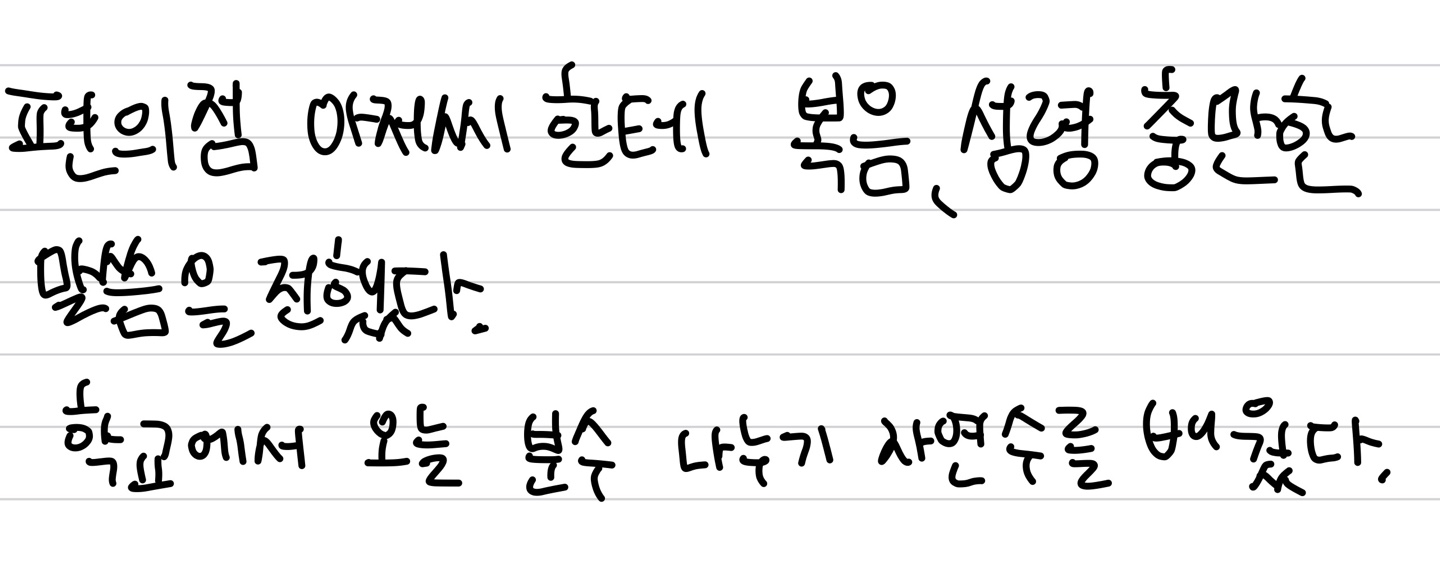 편의점 아저씨 한테 복음, 성령 충만한
말씀을 전했다.
학교에서 오늘 분수 나누기 자연수를 배웠다.